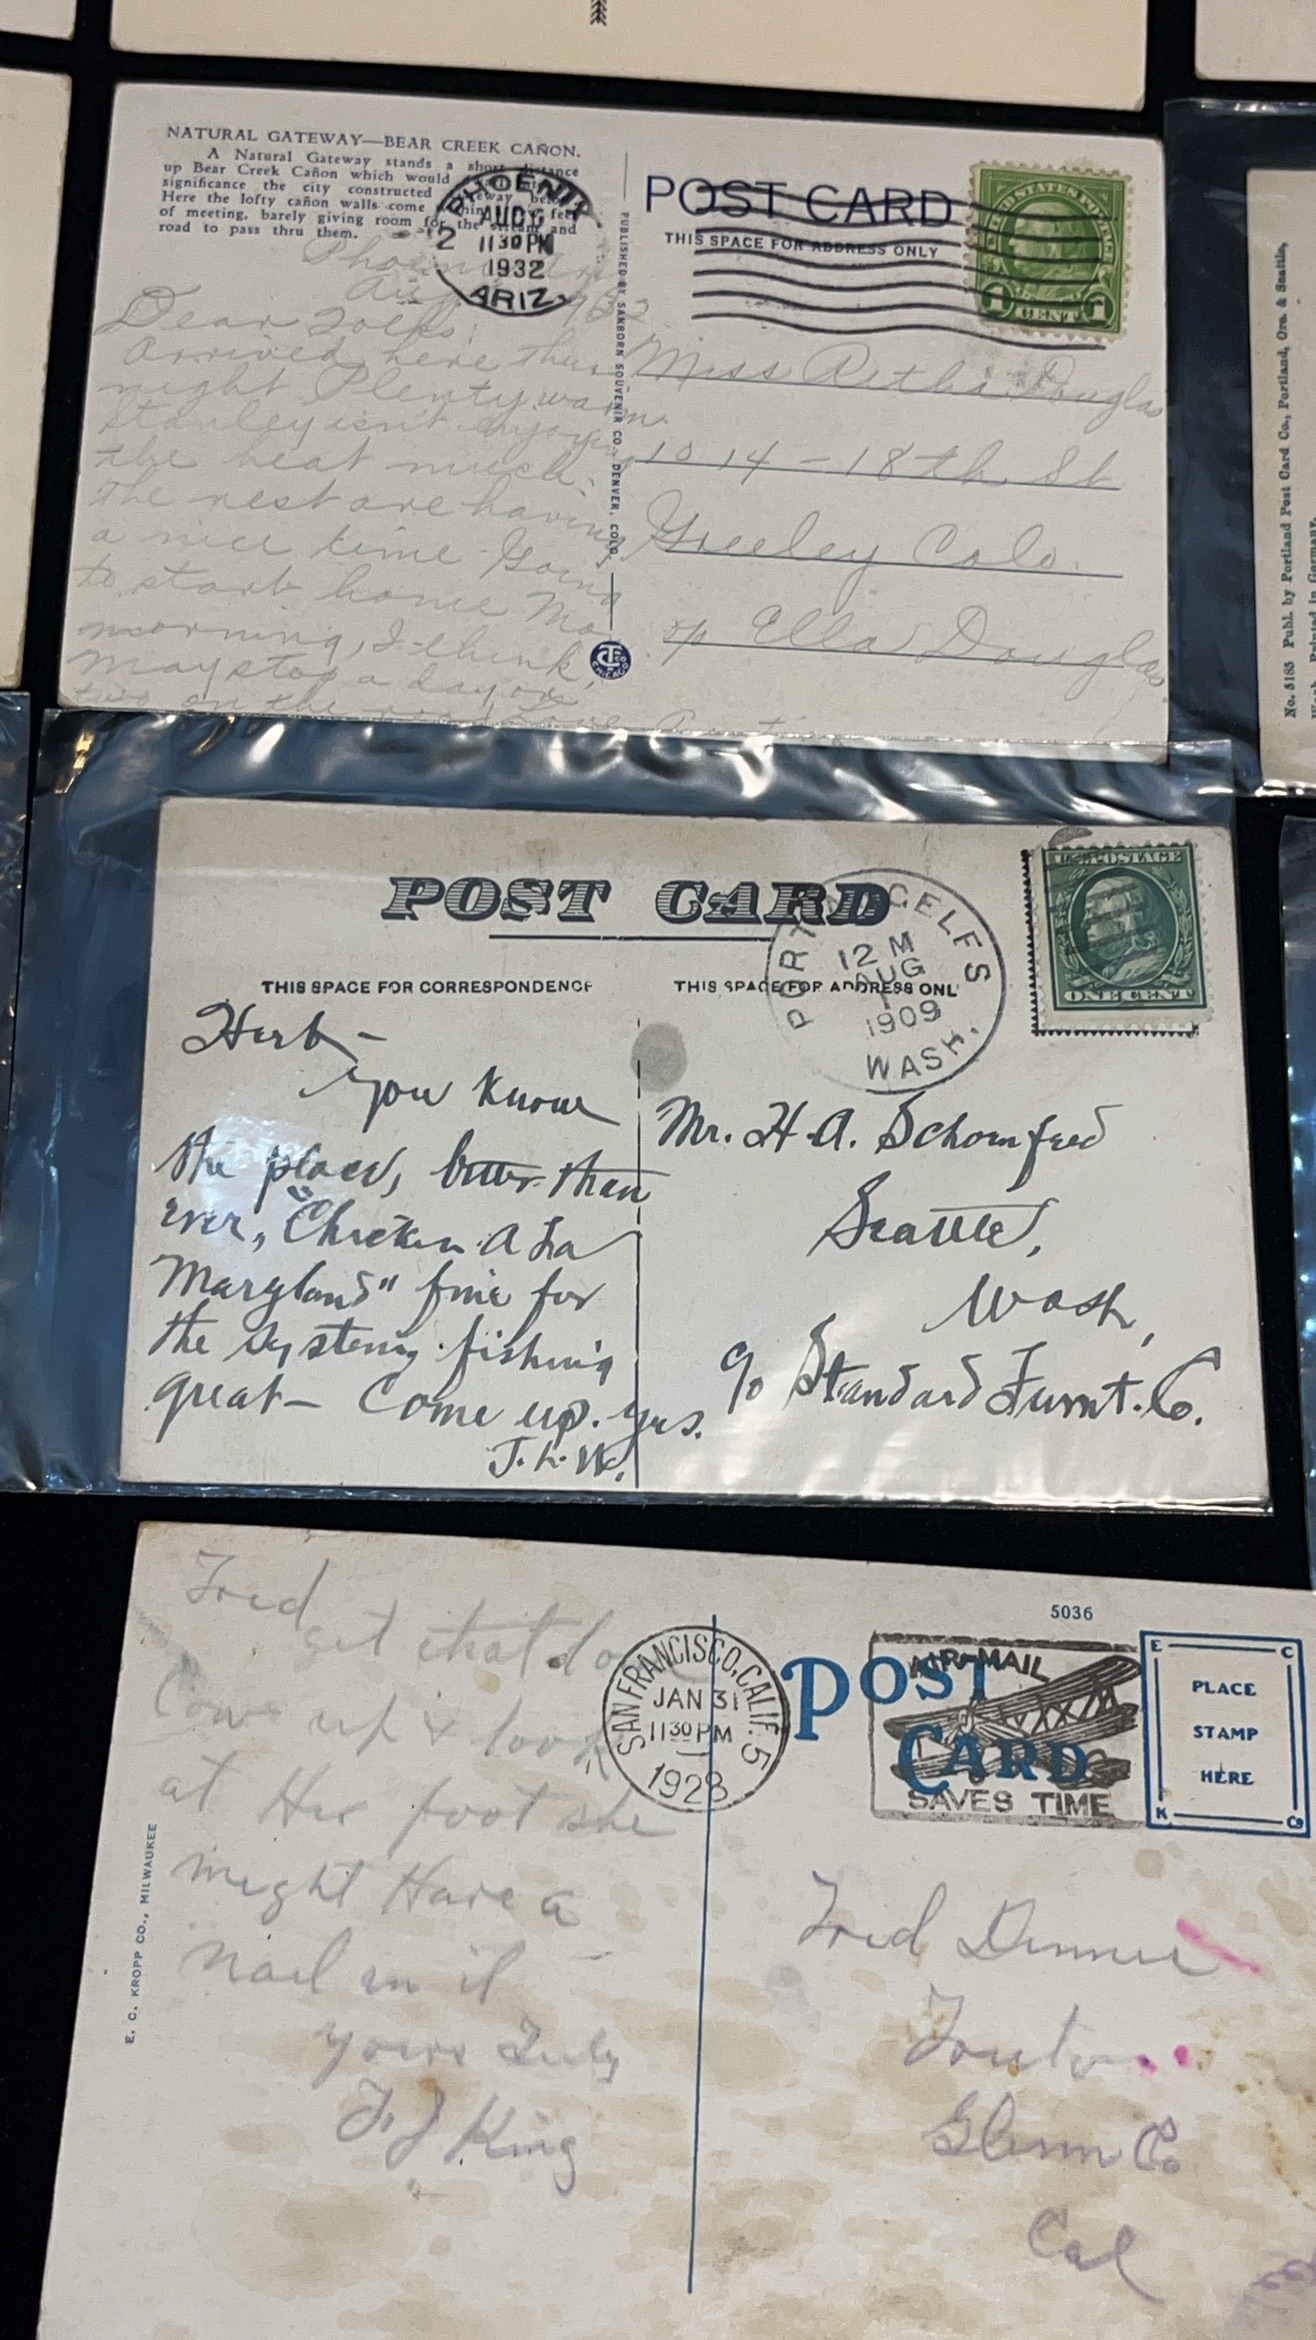 NATURAL GATEWAY—BEAR CREEK CAÑON.
A Natural Gateway stands a short distance
up Bear Creek Cañon which would
significance the city constructed
Here the lofty cañon walls come
of meeting, barely giving room for the stream and
road to pass thru them.
PHOENIX
AUG
11 30 PM
1932
ARIZ.
Dear Folks:
Arrived here
night. Plenty warm
Stanley isn't enjoying
the heat much.
the rest are having
a nice time. Going
to start home
morning, I think,
may stop a day or
two on the road Love Aunt
PUBLISHED BY SANBORN SOUVENIR CO., DENVER, COLO.
CHICAGO
POST CARD
THIS SPACE FOR ADDRESS ONLY
UNITED STATES POSTAGE
1 CENT 1
Miss Retha Douglas
1014 - 18th St
Greeley Colo.
Ella Douglas
POST CARD
THIS SPACE FOR CORRESPONDENCE
THIS SPACE FOR ADDRESS ONL
PORT ANGELES
12 M
AUG
1909
WASH.
U.S. POSTAGE
ONE CENT
Herb –
You know
the place, better than
ever, "Chicken A La
Maryland" fine for
the system, fishing
great – Come up. yrs.
J. L. W.
Mr. H. A. Schoenfeed
Seattle,
Wash,
c/o Standard Furnt. Co.
Fred
get that
Cow up & look
at Her foot she
might Have a
nail in it
yours Truly
F J King
E. C. KROPP CO., MILWAUKEE
SAN FRANCISCO, CALIF. 5
JAN 31
11 30 PM
1928
5036
POST
CARD
AIR MAIL
SAVES TIME
E C
PLACE
STAMP
HERE
K Co
Fred
Glenn Co
Cal
No. 5185 Publ. by Portland Post Card Co., Portland, Ore. & Seattle,
Wash. Printed in Germany.